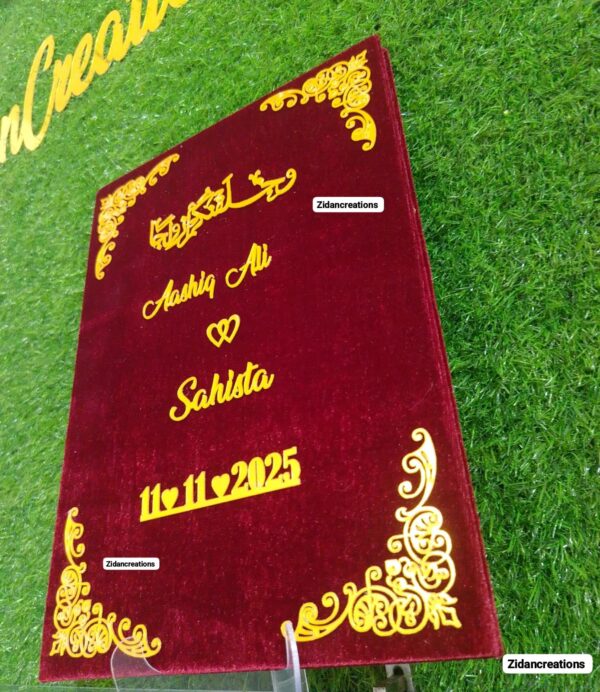 nCreati
Zidancreations
Aashiq Ali
Sahista
11♥11♥2025
Zidancreations
Zidancreations